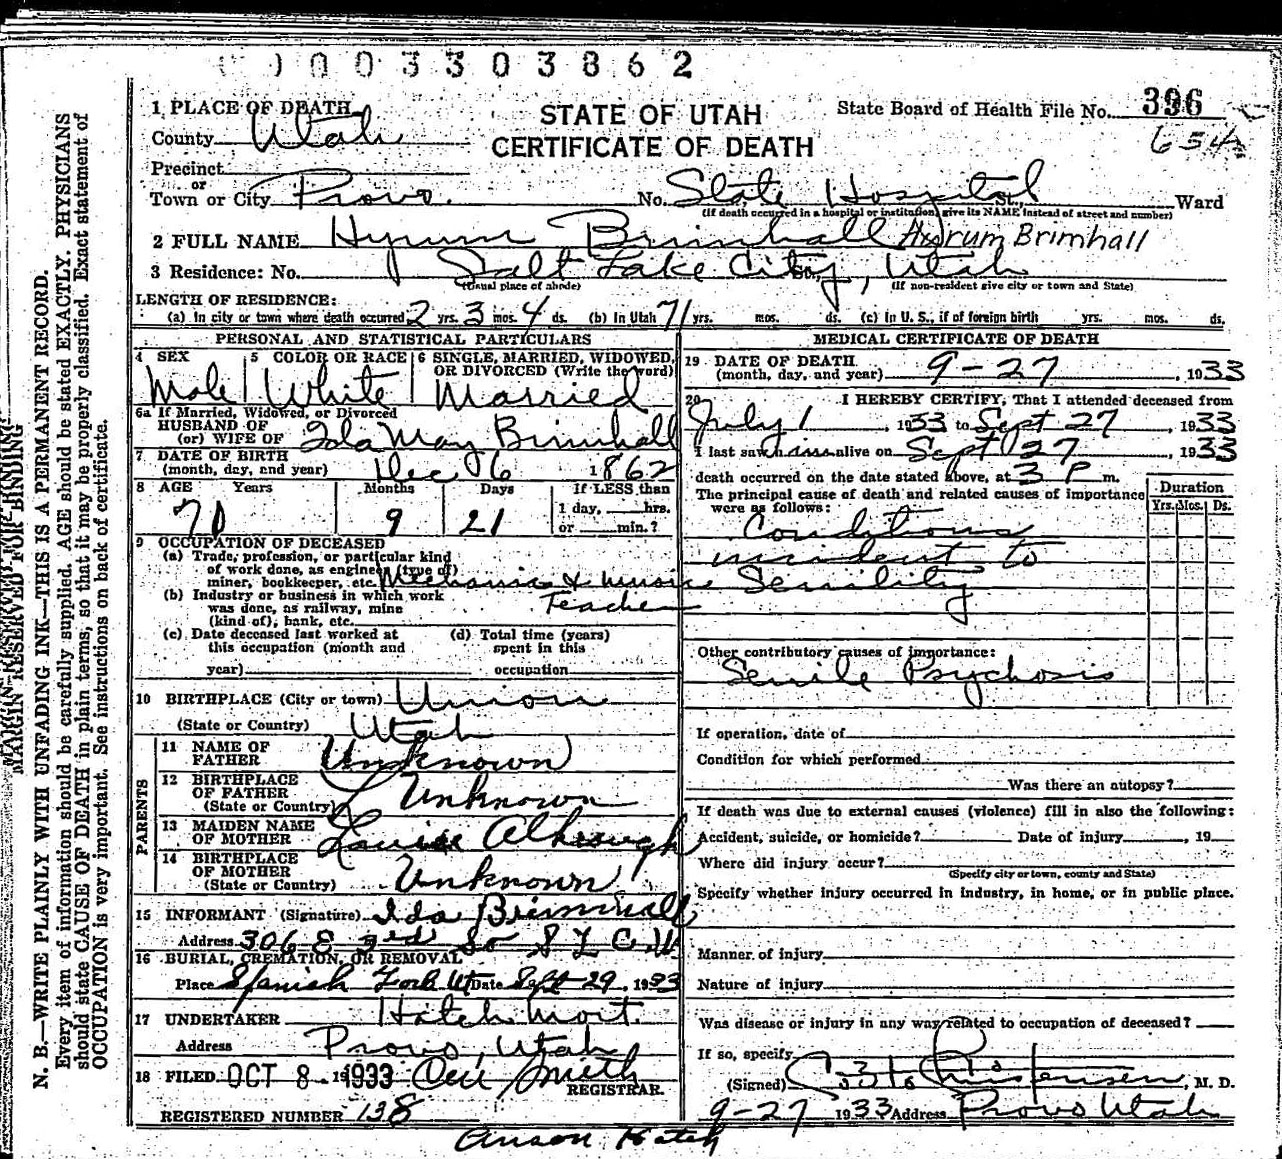 0003303862
1 PLACE OF DEATH
County Utah
STATE OF UTAH
CERTIFICATE OF DEATH
State Board of Health File No. 396
654
Precinct
or
Town or City Provo. No. State Hospital St., Ward
(If death occurred in a hospital or institution, give its NAME instead of street and number)
2 FULL NAME Hyrum Brimhall Hyrum Brimhall
3 Residence: No. Salt Lake City, Utah
(Usual place of abode) (If non-resident give city or town and State)
LENGTH OF RESIDENCE:
(a) In city or town where death occurred 2 yrs. 3 mos. 4 ds. (b) In Utah 71 yrs. mos. ds. (c) In U. S., if of foreign birth yrs. mos. ds.
PERSONAL AND STATISTICAL PARTICULARS
4 SEX Male
5 COLOR OR RACE White
6 SINGLE, MARRIED, WIDOWED, OR DIVORCED (Write the word) Married
6a If Married, Widowed, or Divorced
HUSBAND OF
(or) WIFE OF Ida May Brimhall
7 DATE OF BIRTH
(month, day, and year) Dec 6 1862
8 AGE Years Months Days If LESS than
70 9 21 1 day, hrs.
or min.?
9 OCCUPATION OF DECEASED
(a) Trade, profession, or particular kind
of work done, as engineer (type of)
miner, bookkeeper, etc. Mechanic & Music
Teacher
(b) Industry or business in which work
was done, as railway, mine
(kind of), bank, etc.
(c) Date deceased last worked at
this occupation (month and
year)
(d) Total time (years)
spent in this
occupation
10 BIRTHPLACE (City or town) Union
(State or Country) Utah
PARENTS
11 NAME OF
FATHER Unknown
12 BIRTHPLACE
OF FATHER
(State or Country) Unknown
13 MAIDEN NAME
OF MOTHER Louise
14 BIRTHPLACE
OF MOTHER
(State or Country) Unknown
15 INFORMANT (Signature) Ida Brimhall
Address 306 E 3rd So S L C U
16 BURIAL, CREMATION, OR REMOVAL
Place Spanish Fork Ut Date Sept 29, 1933
17 UNDERTAKER Hatch Mort.
Address Provo, Utah
18 FILED OCT 8. 1933 Smith
REGISTRAR.
REGISTERED NUMBER 138
Anson Hatch
MEDICAL CERTIFICATE OF DEATH
19 DATE OF DEATH
(month, day, and year) 9-27, 1933
20 I HEREBY CERTIFY, That I attended deceased from
July 1, 1933 to Sept 27, 1933
I last saw him alive on Sept 27, 1933
death occurred on the date stated above, at 3 P m.
The principal cause of death and related causes of importance
were as follows:
Duration
Yrs. Mos. Ds.
Conditions
incident to
Senility
Other contributory causes of importance:
Senile Psychosis
If operation, date of
Condition for which performed
Was there an autopsy?
If death was due to external causes (violence) fill in also the following:
Accident, suicide, or homicide? Date of injury, 19
Where did injury occur?
(Specify city or town, county and State)
Specify whether injury occurred in industry, in home, or in public place.
Manner of injury
Nature of injury
Was disease or injury in any way related to occupation of deceased?
If so, specify
(Signed) Christensen, M. D.
9-27 1933 Address Provo Utah
MARGIN RESERVED FOR BINDING
N. B.—WRITE PLAINLY WITH UNFADING INK—THIS IS A PERMANENT RECORD.
Every item of information should be carefully supplied. AGE should be stated EXACTLY. PHYSICIANS
should state CAUSE OF DEATH in plain terms, so that it may be properly classified. Exact statement of
OCCUPATION is very important. See instructions on back of certificate.